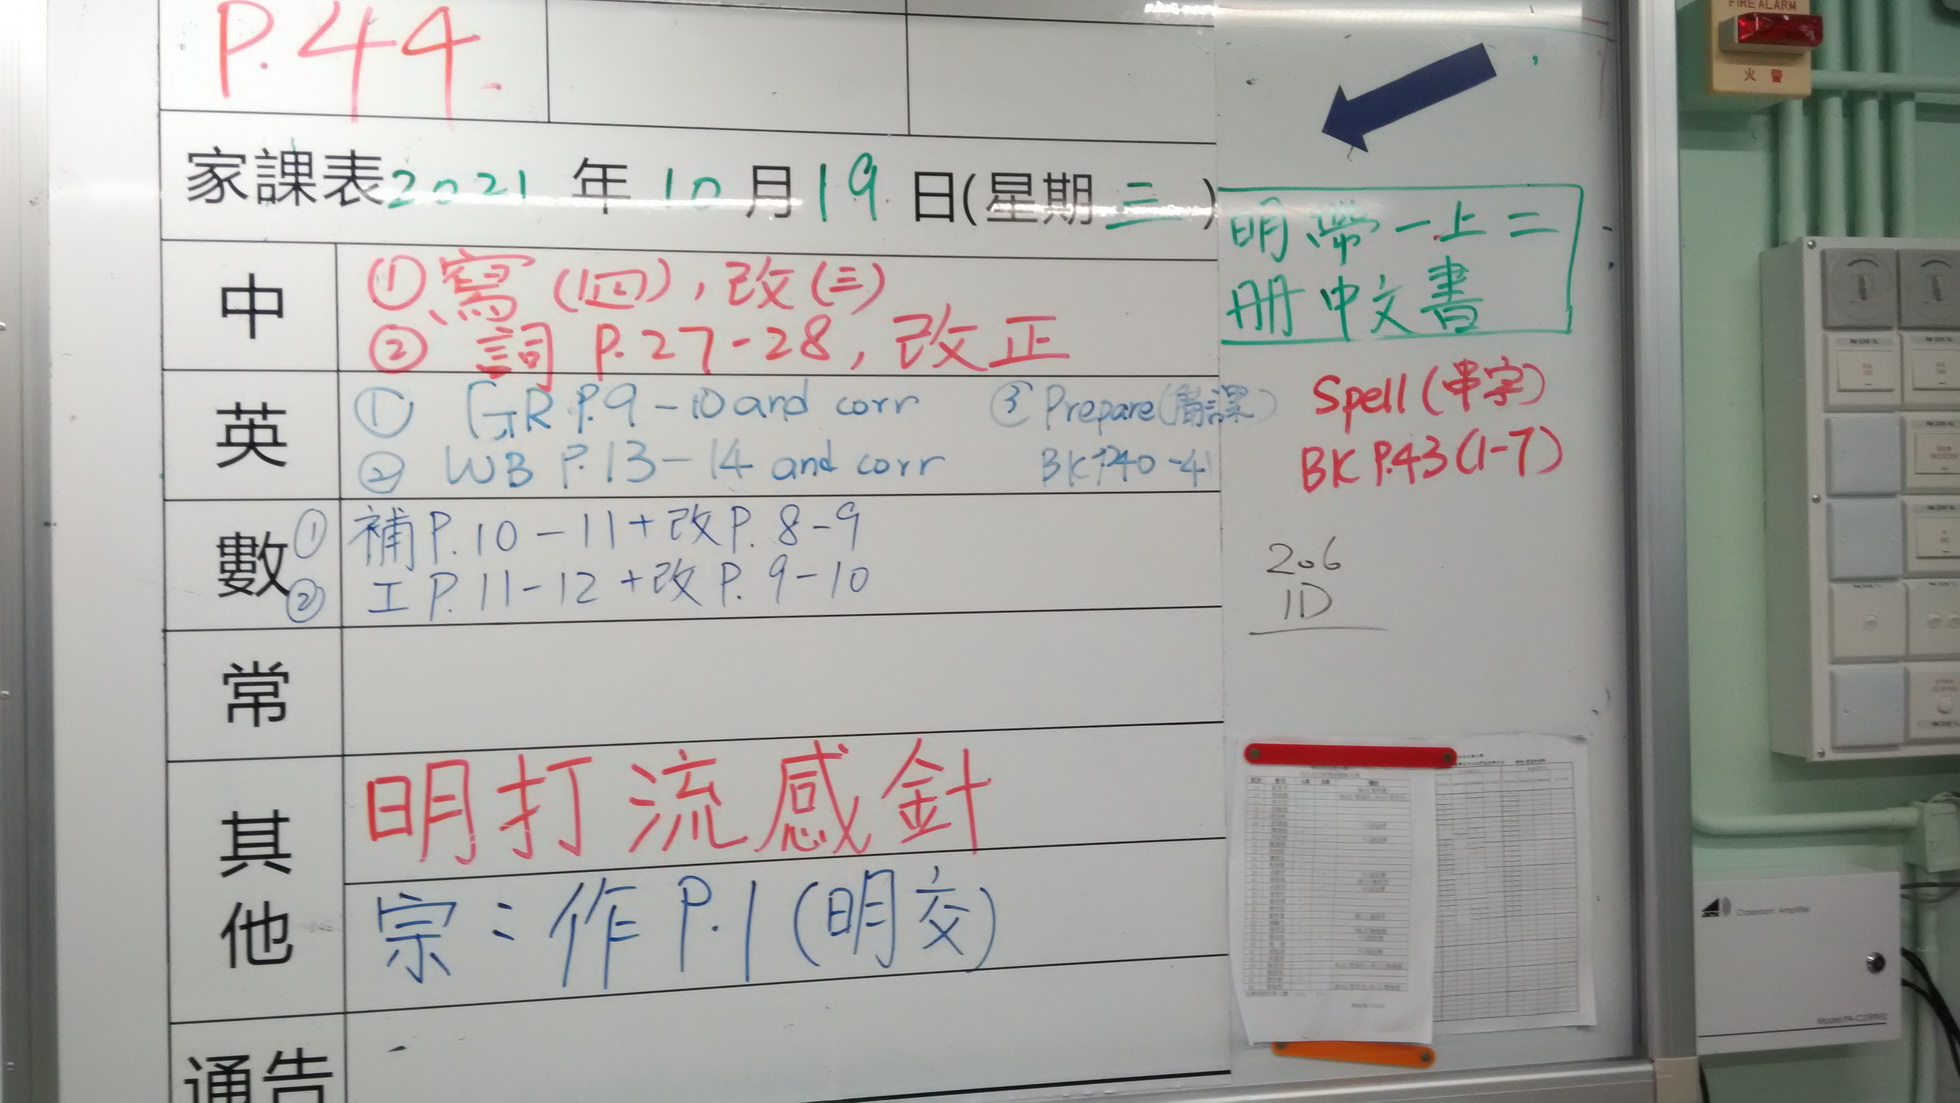 P.44.
家課表2021年10月19日(星期三)
中
①寫(四),改(三)
② 詞 P.27-28, 改正
英
① GR P.9-10 and corr
② WB P.13-14 and corr
③ Prepare(備課)
BK P.40-41
數
① 補 P.10-11+改P.8-9
② 工 P.11-12+改P.9-10
常
其他
明打流感針
宗:作P.1(明交)
通告
明帶一上二
冊中文書
Spell(串字)
BK P.43(1-7)
206
1D
FIRE ALARM
火警
Classroom Amplifier